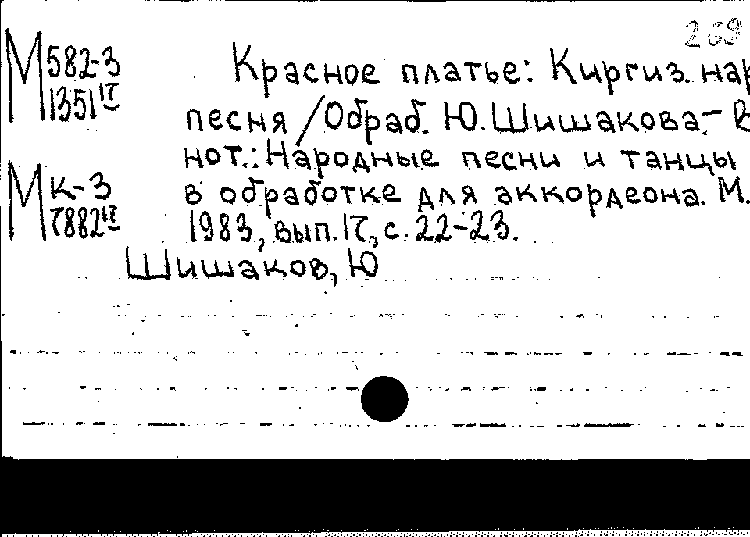 269
М 582-3
1351 17
Красное платье: Киргиз. нар
песня / Обраб. Ю. Шишакова.- В
нот.: Народные песни и танцы
в обработке для аккордеона. М.
1983, вып. 17, с. 22-23.
М К-3
7882 17
Шишаков, Ю